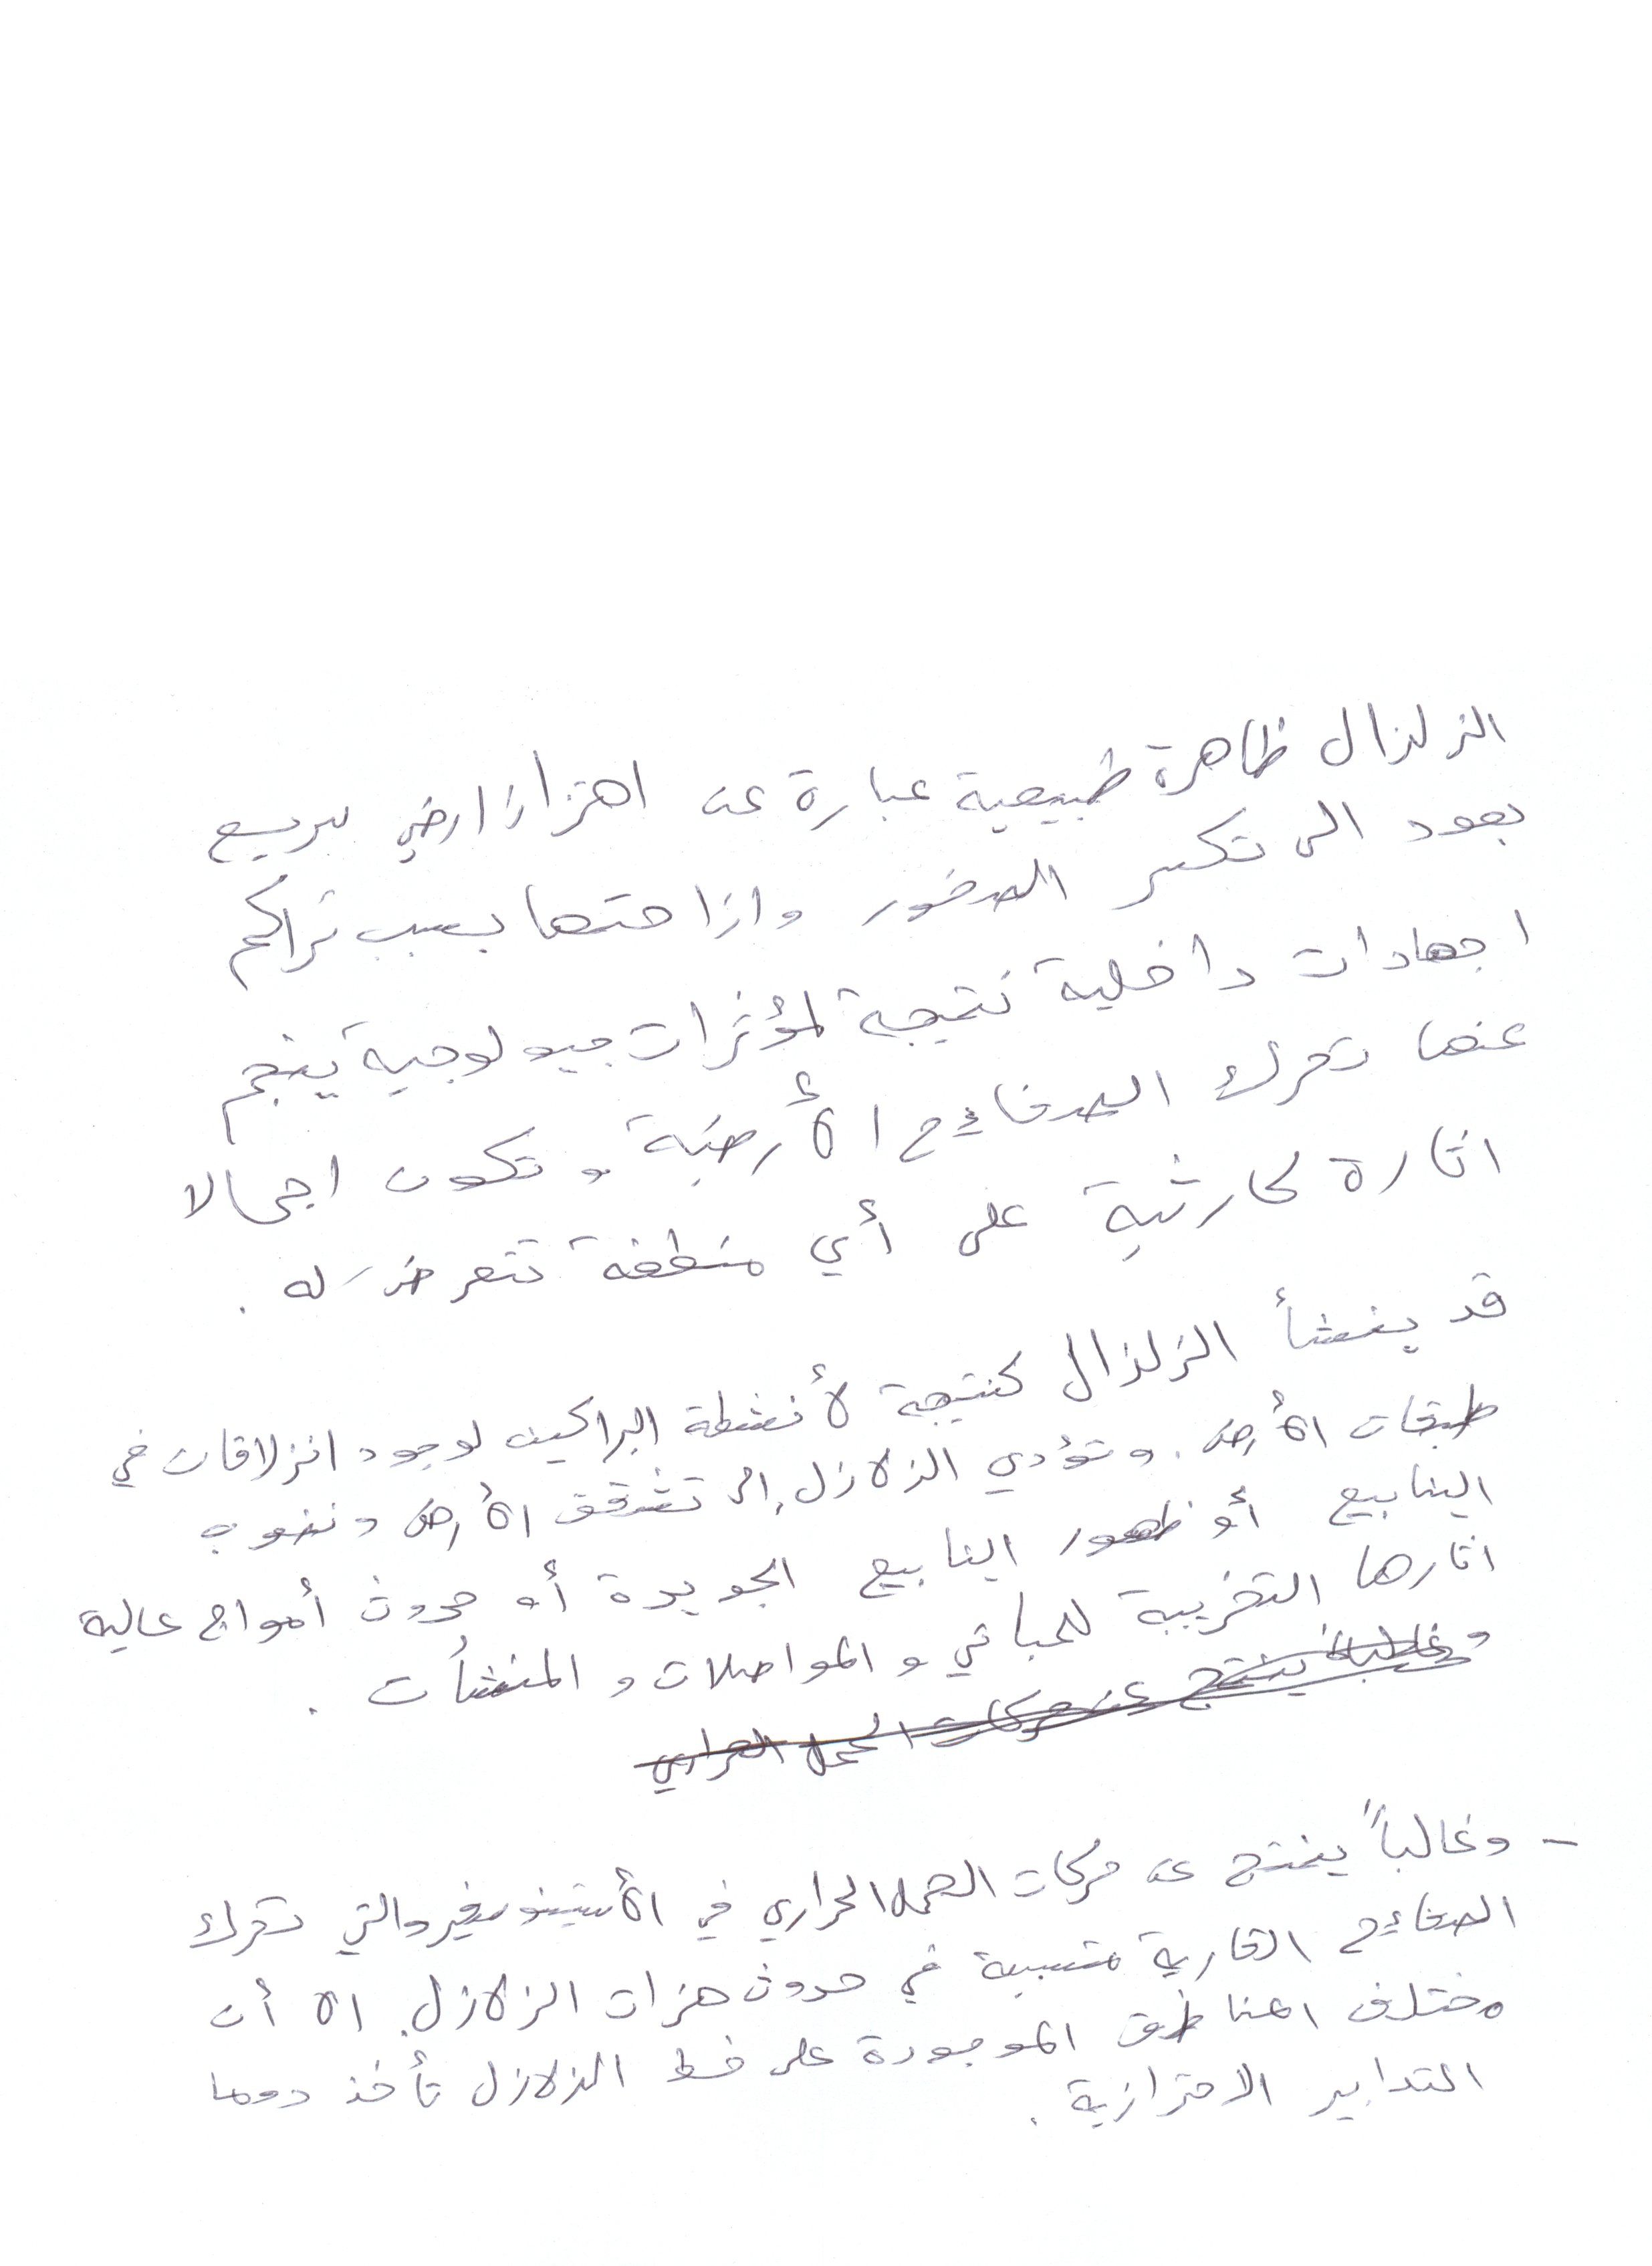 الزلزال ظاهرة طبيعية عبارة عن اهتزاز ارضي سريع
يعود الى تكسر الصخور وازاحتها بسبب تراكم
اجهادات داخلية نتيجة لمؤثرات جيولوجية ينجم
عنها تحرك الصفائح الأرضية وتكون اجمالا
اثاره كارثية على أي منطقة تتعرض له .
قد ينشأ الزلزال كنتيجة لأنشطة البراكين لوجود انزلاقات في
طبقات الأرض. وتؤدي الزلازل إلى تشقق الأرض ونضوب
الينابيع أو ظهور الينابيع الجديدة أو حدوث أمواج عالية
اثارها التخريبية للمباني والمواصلات والمنشأت .
وغالبا ينتج عن حركات الحمل الحراري
- وغالباً ينتج عن حركات الحمل الحراري في الأستينوسفير والتي تحرك
الصفائح القارية متسببة في حدوث هزات الزلازل. الا أن
مختلف المناطق الموجودة على خط الزلازل تأخذ دوما
التدابير الاحترازية .